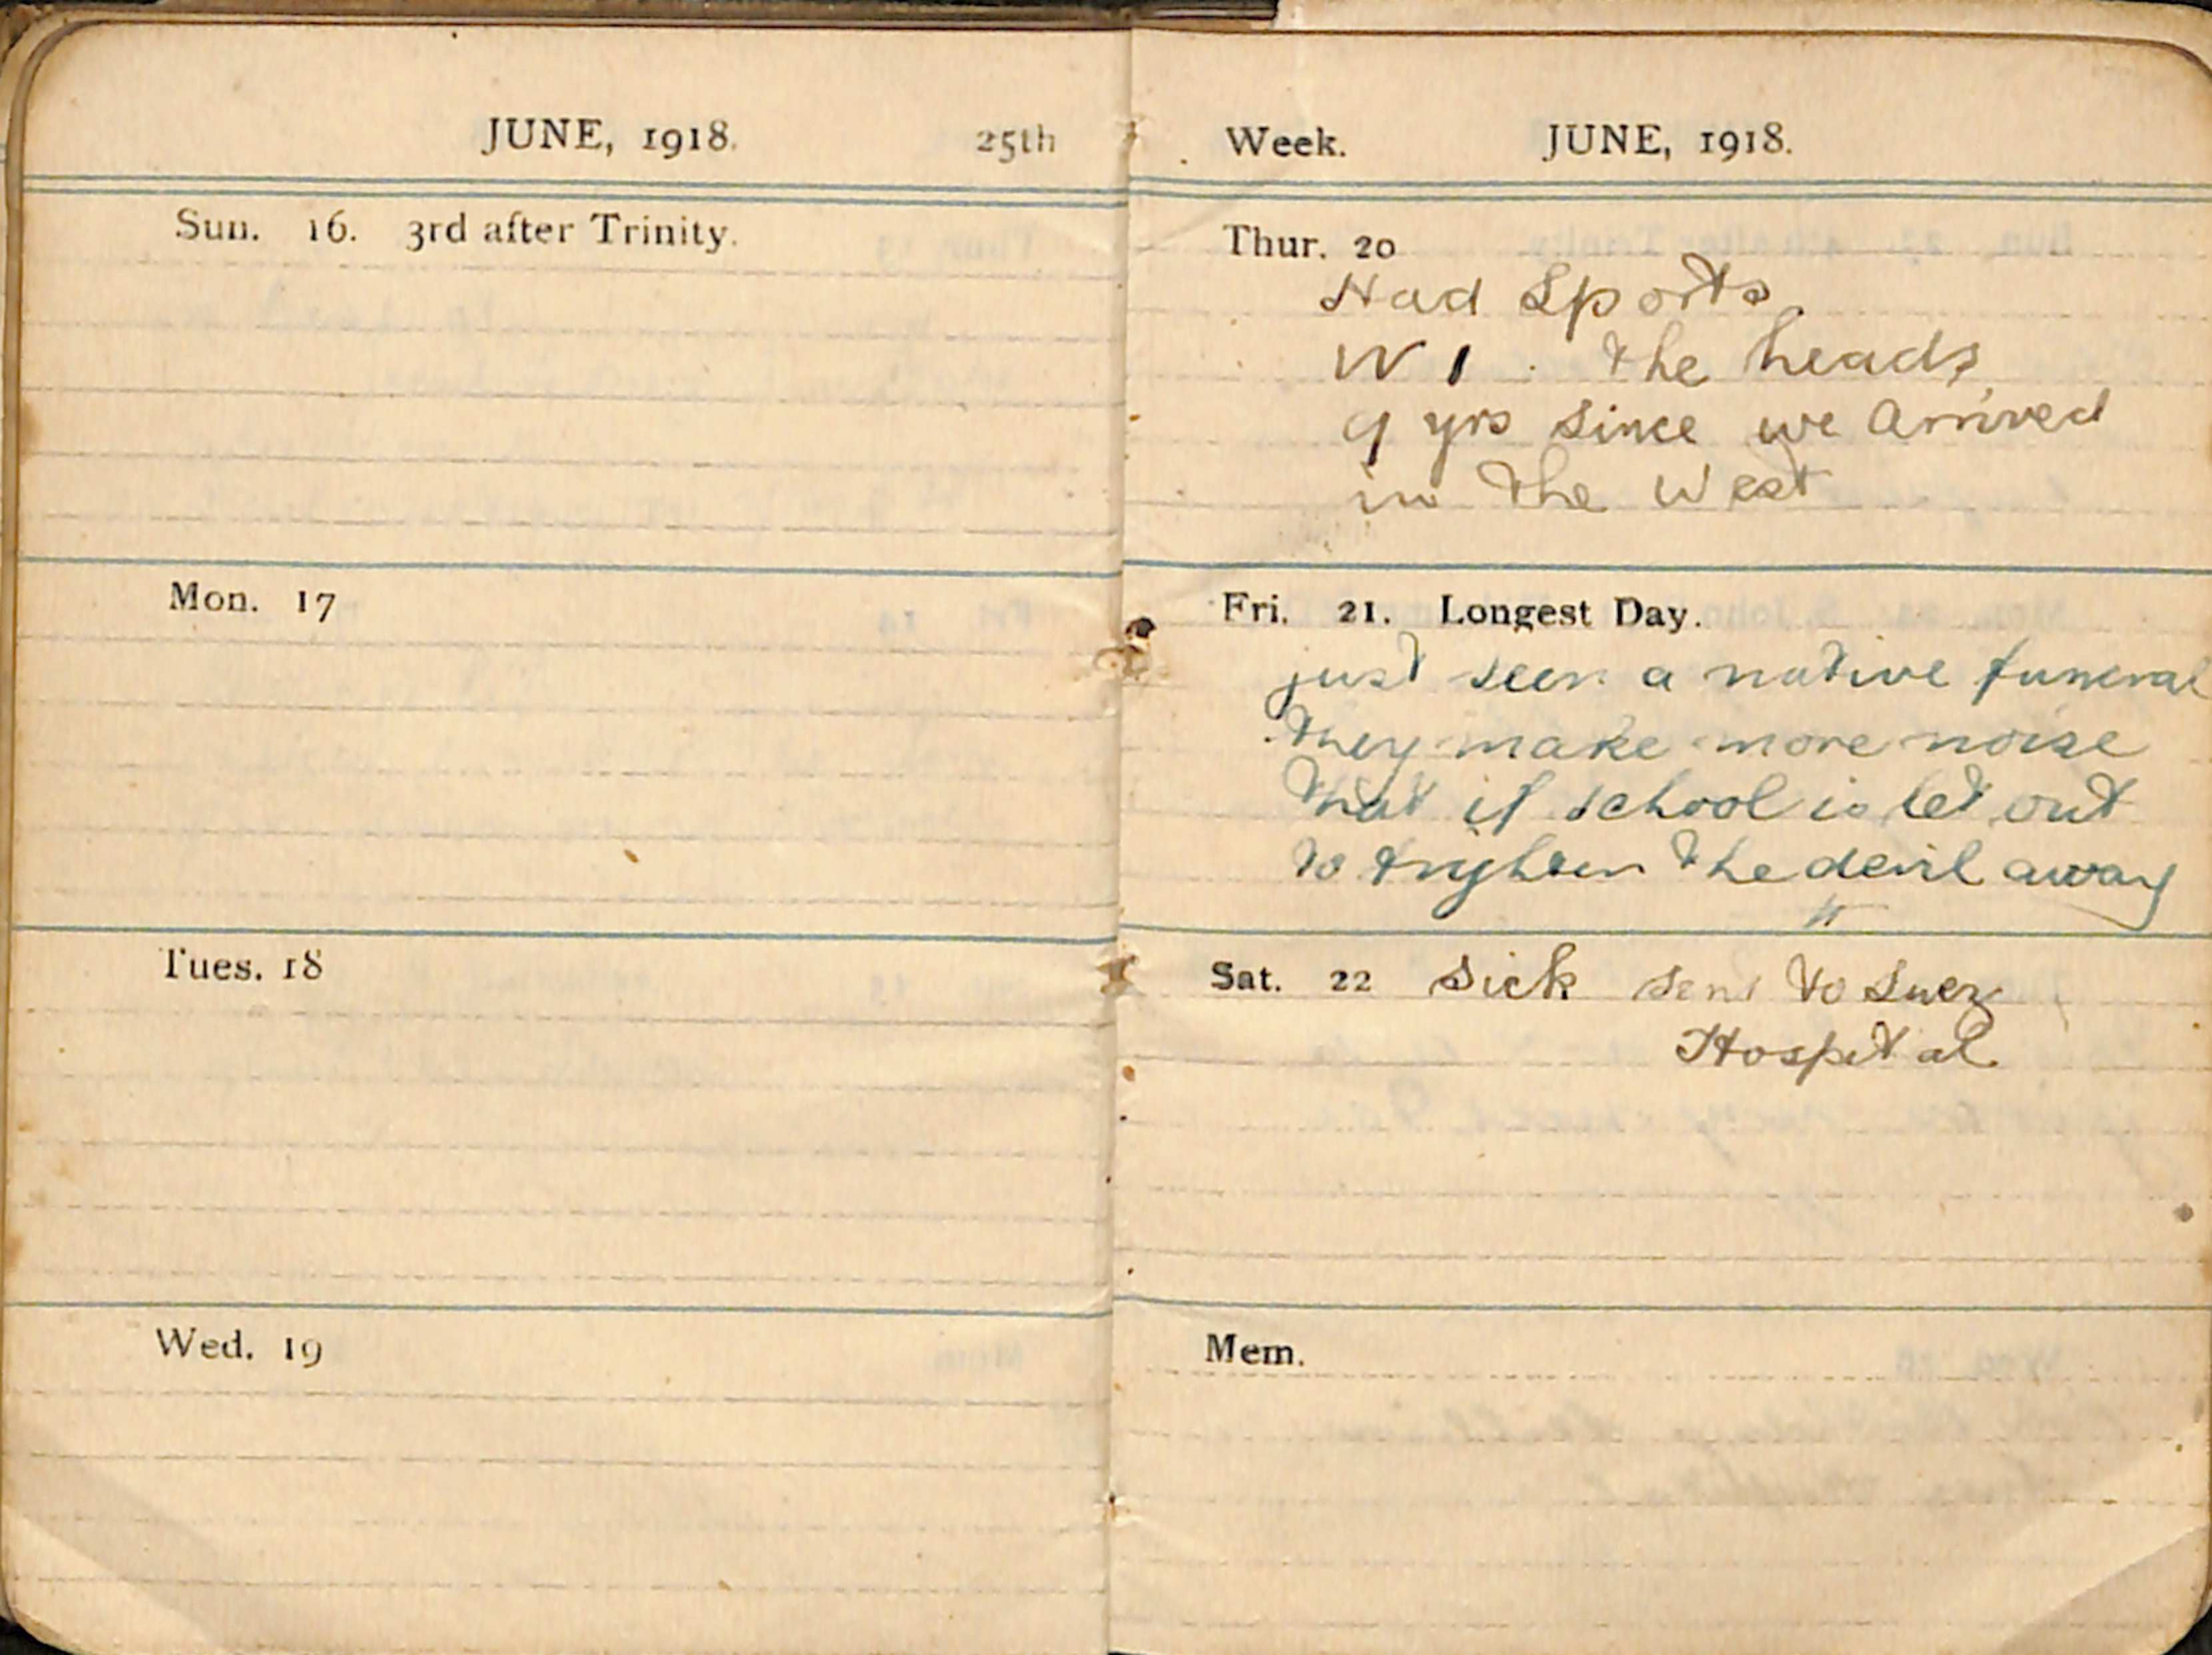 JUNE, 1918. 25th
Sun. 16. 3rd after Trinity.
Mon. 17
Tues. 18
Wed. 19
Week. JUNE, 1918.
Thur. 20
Had Sports
W 1 . the heads
9 yrs since we Arrived
in the West
Fri. 21. Longest Day.
just seen a native funeral
they make more noise
that if school is let out
to frighten the devil away
Sat. 22 Sick sent to Suez
Hospital
Mem.